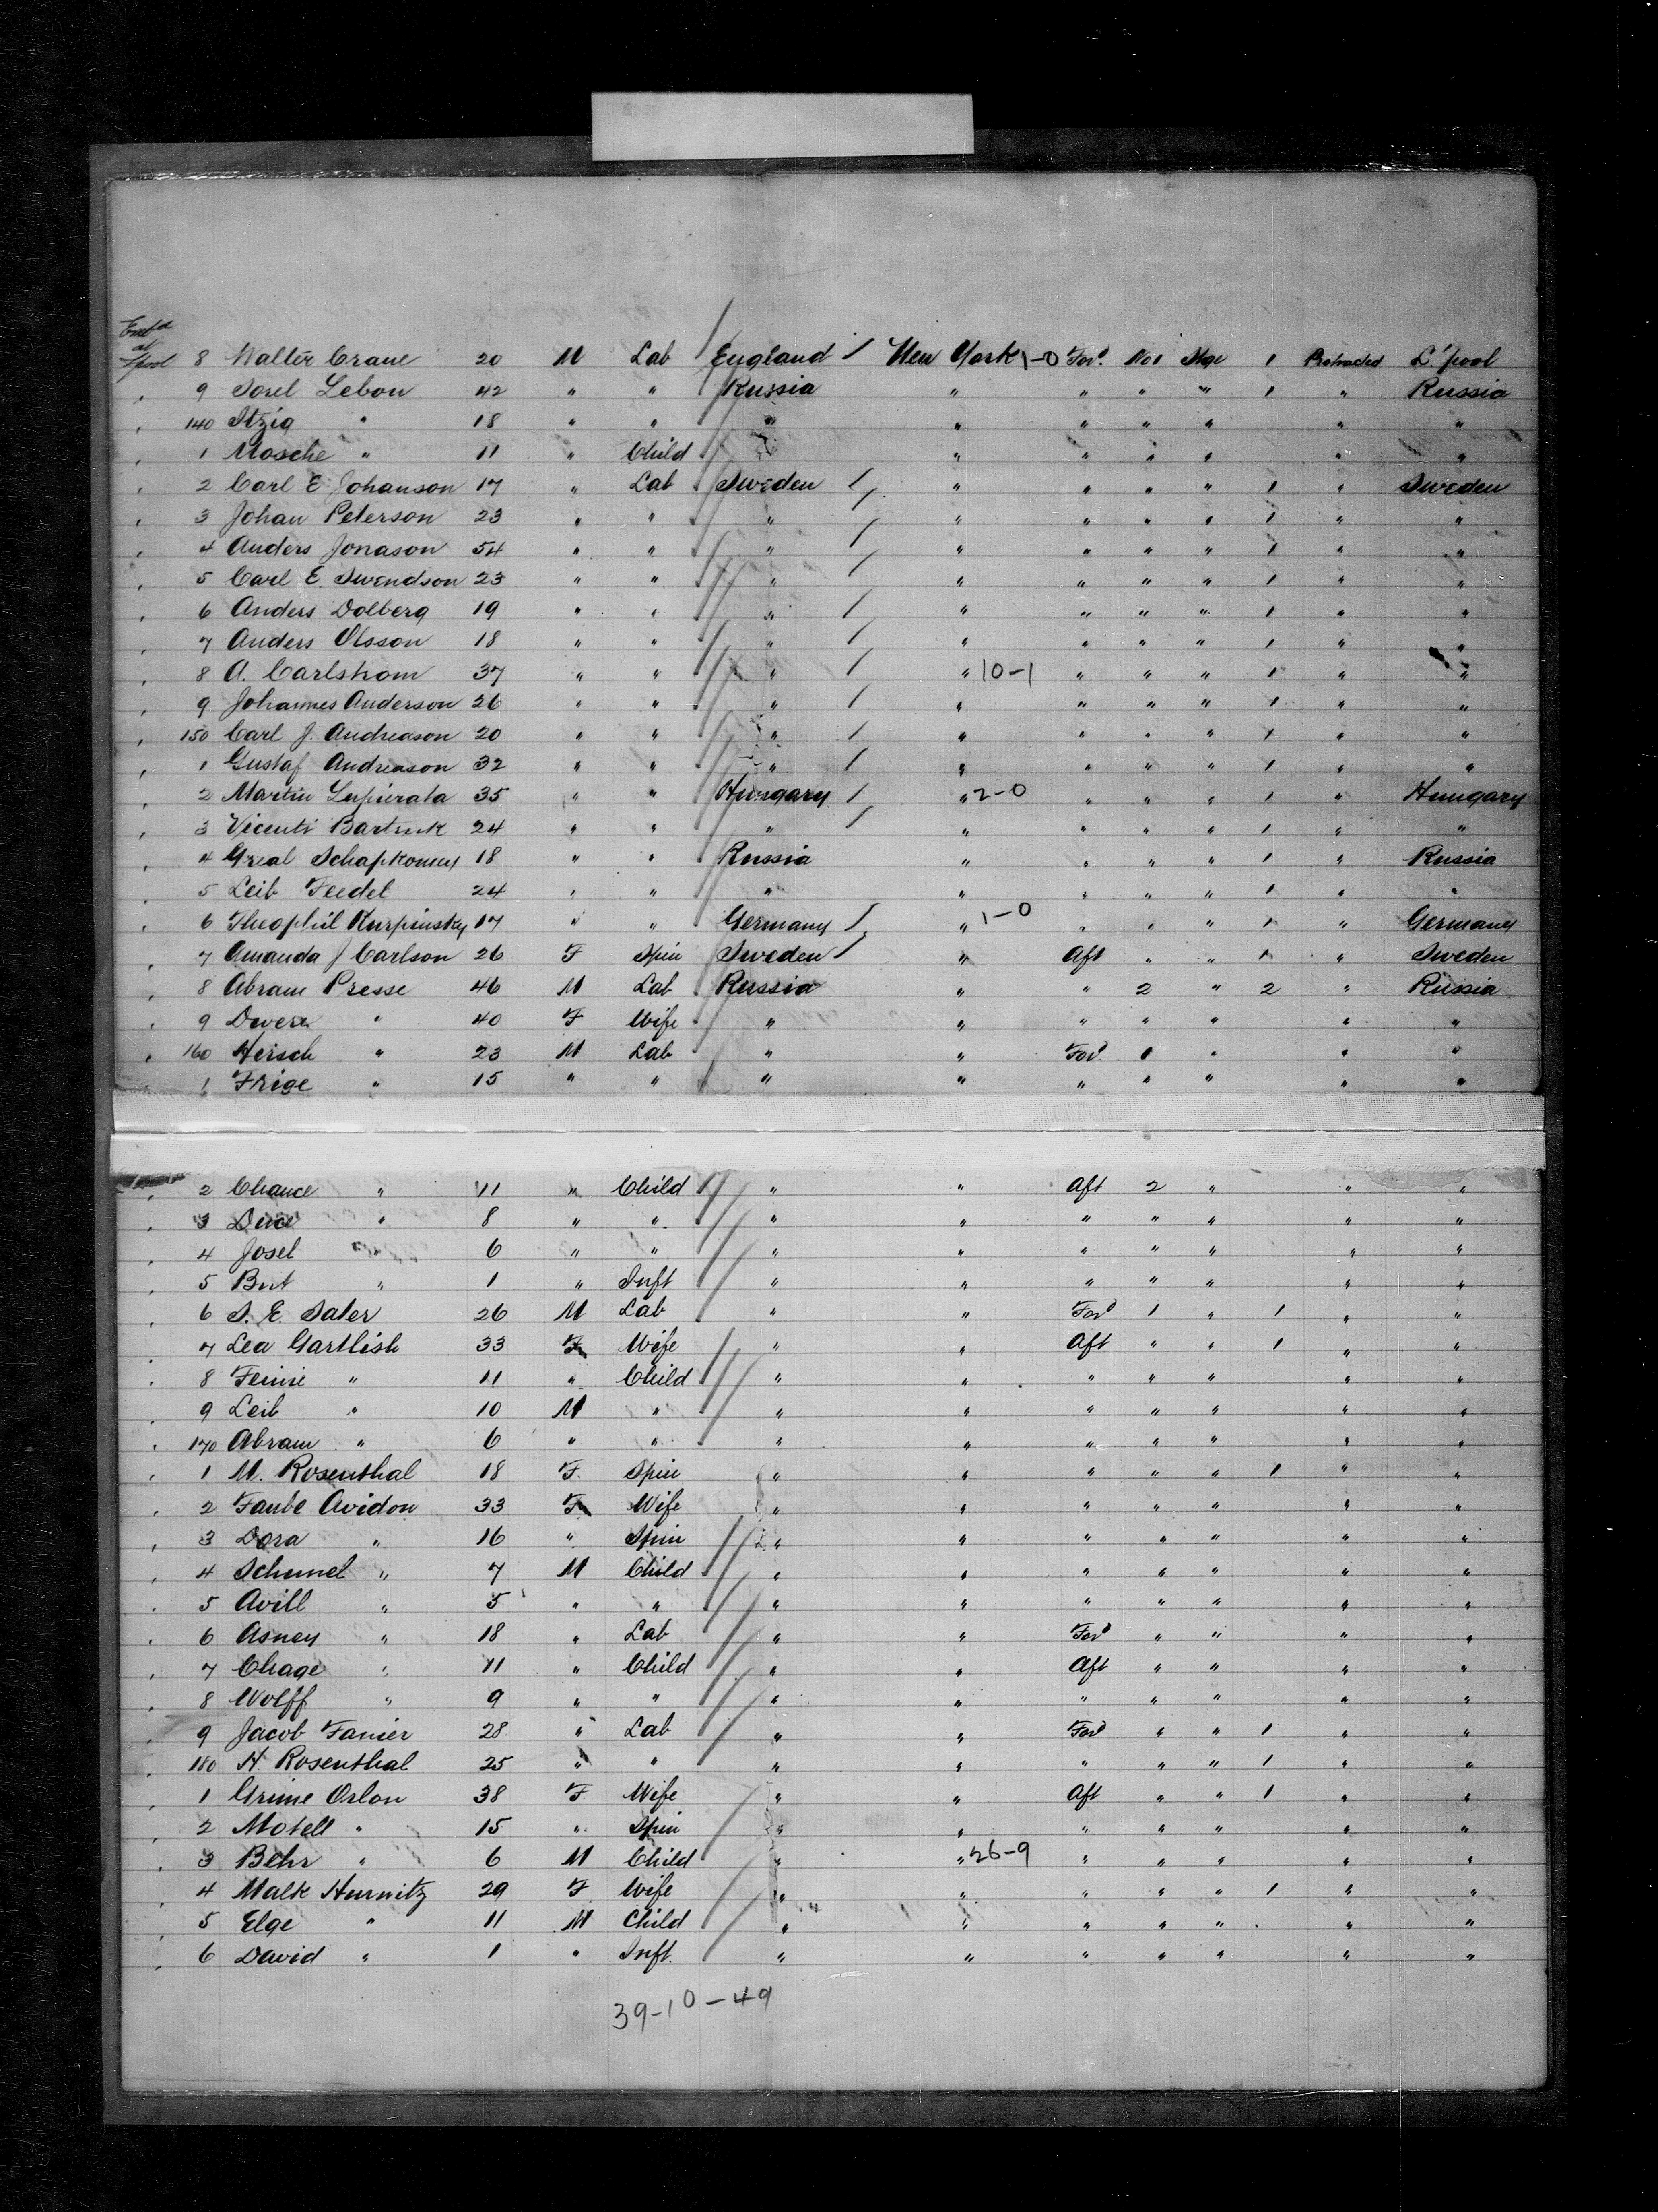 Emb'd at L'pool 8 Walter Crane 20 M Lab England / New York 1-0 For'd No 1 Stge 1 Protracted L'pool
" 9 Sorel Lebon 42 " " Russia " " " " 1 " Russia
" 140 Itzig " 18 " " " " " " " " "
" 1 Mosche " 11 " Child " " " " " " "
" 2 Carl E Johanson 17 " Lab Sweden / " " " " 1 " Sweden
" 3 Johan Peterson 23 " " " / " " " " 1 " "
" 4 Anders Jonason 54 " " " / " " " " 1 " "
" 5 Carl E. Swendson 23 " " " / " " " " 1 " "
" 6 Anders Dolberg 19 " " " / " " " " 1 " "
" 7 Anders Olsson 18 " " " / " " " " 1 " "
" 8 A. Carlstrom 37 " " " / " 10-1 " " " 1 " "
" 9 Johannes Anderson 26 " " " / " " " " 1 " "
" 150 Carl J. Andreason 20 " " " / " " " " 1 " "
" 1 Gustaf Andreason 32 " " " / " " " " 1 " "
" 2 Martin 35 " " Hungary / " 2-0 " " " 1 " Hungary
" 3 Vicenti 24 " " " / " " " " 1 " "
" 4 18 " " Russia " " " " 1 " Russia
" 5 Leib Feedel 24 " " " " " " " 1 " "
" 6 Theophil Kurpinsky 17 " " Germany / " 1-0 " " " 1 " Germany
" 7 Amanda J Carlson 26 F Spin Sweden / " Aft " " 1 " Sweden
" 8 Abram Presse 46 M Lab Russia " " 2 " 2 " Russia
" 9 Dwere " 40 F Wife " " " " " " "
" 160 Hersch " 23 M Lab " " For'd 1 " " "
" 1 Frige " 15 " " " " " " " " "
" 2 Chance " 11 " Child " " Aft 2 " " "
" 3 " 8 " " " " " " " " "
" 4 Josel " 6 " " " " " " " " "
" 5 " 1 " Inft " " " " " " "
" 6 S. E. Sater 26 M Lab " " For'd 1 " 1 " "
" 7 Lea Gartlish 33 F Wife " " Aft " " 1 " "
" 8 Feinie " 11 " Child " " " " " " "
" 9 Leib " 10 M " " " " " " " "
" 170 Abram " 6 " " " " " " " " "
" 1 M. Rosenthal 18 F. Spin " " " " " 1 " "
" 2 Taube Avidon 33 F Wife " " " " " " "
" 3 Dora " 16 " Spin " " " " " " "
" 4 Schmel " 7 M Child " " " " " " "
" 5 Avill " 5 " " " " " " " " "
" 6 Asney " 18 " Lab " " For'd " " " "
" 7 Chage " 11 " Child " " Aft " " " "
" 8 Wolff " 9 " " " " " " " " "
" 9 Jacob Fanier 28 " Lab " " For'd " " 1 " "
" 180 H Rosenthal 25 " " " " " " " 1 " "
" 1 Grime Orlon 38 F Wife " " Aft " " 1 " "
" 2 Motell " 15 " Spin " " " " " " "
" 3 Behr " 6 M Child " " 26-9 " " " " "
" 4 Malk Hurwitz 29 F Wife " " " " " 1 " "
" 5 Elge " 11 M Child " " " " " " "
" 6 David " 1 " Inft. " " " " " " "
39-10-49